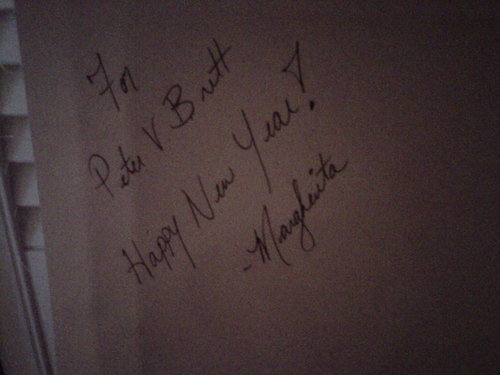 For
Peter V Brett
Happy New Year!
- Margherita